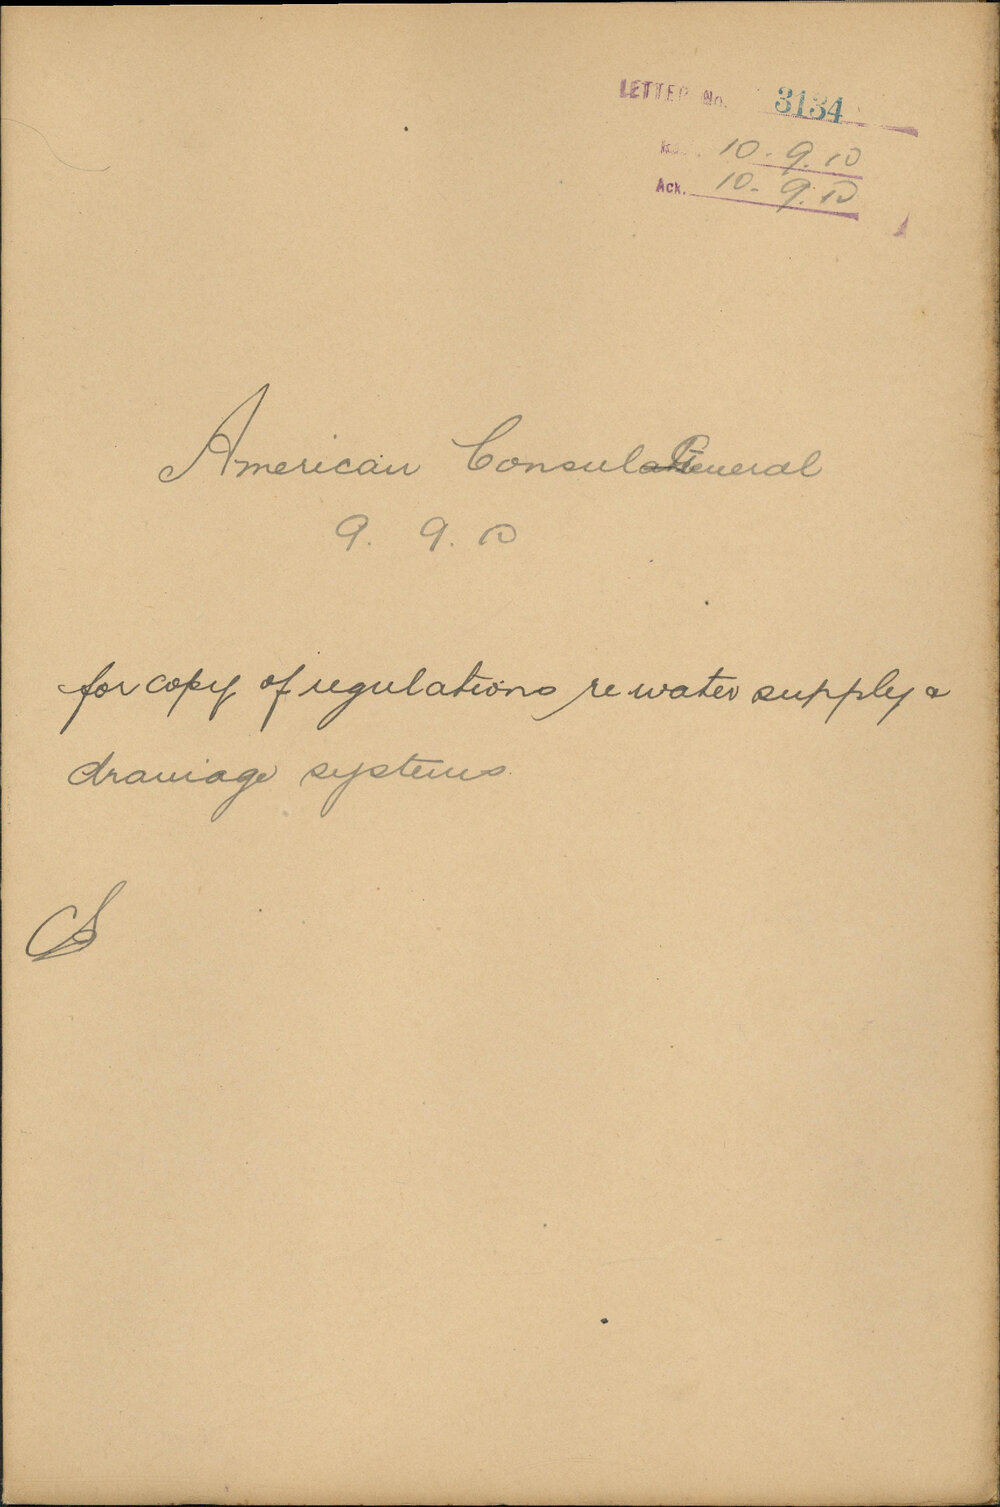 LETTER No. 3134
10.9.10
Ack. 10.9.10
American Consul General
9.9.10
for copy of regulations re water supply &
drainage systems